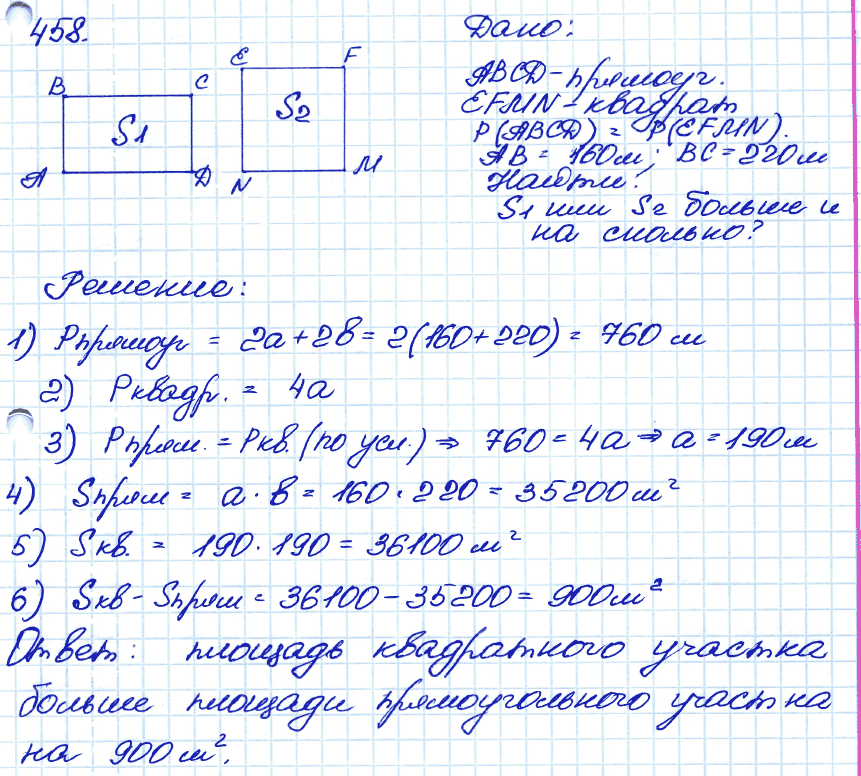 458.
B C
S1
A D
E F
S2
N M
Дано:
ABCD - прямоуг.
EFMN - квадрат
P(ABCD) = P(EFMN).
AB = 160м; BC = 220м
Найти:
S1 или S2 больше и
на сколько?
Решение:
1) Pпрямоуг = 2a + 2b = 2(160 + 220) = 760 м
2) Pквадр. = 4a
3) Pпрям. = Pкв. (по усл.) ⇒ 760 = 4a ⇒ a = 190м
4) Sпрям = a · b = 160 · 220 = 35200 м²
5) Sкв. = 190 · 190 = 36100 м²
6) Sкв - Sпрям = 36100 - 35200 = 900м²
Ответ: площадь квадратного участка
больше площади прямоугольного участка
на 900 м².